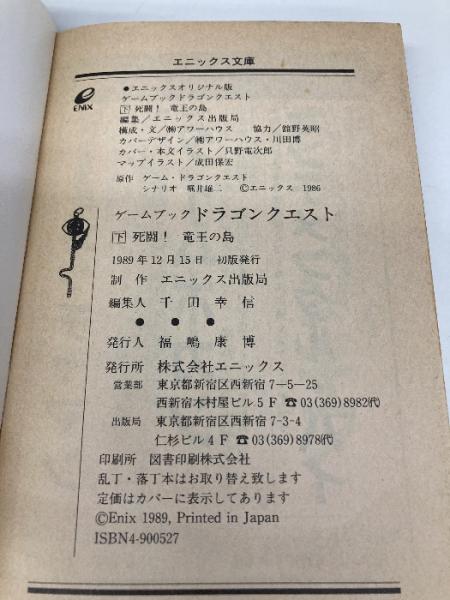 エニックス文庫
ENIX
●エニックスオリジナル版
ゲームブックドラゴンクエスト
下 死闘! 竜王の島
編集/エニックス出版局
構成・文/㈱アワーハウス 協力/舘野英昭
カバーデザイン/㈱アワーハウス・川田博
カバー・本文イラスト/只野竜次郎
マップイラスト/成田保宏
原作 ゲーム・ドラゴンクエスト
シナリオ 堀井雄二 ©エニックス 1986
ゲームブック ドラゴンクエスト
下 死闘! 竜王の島
1989年12月15日 初版発行
制作 エニックス出版局
編集人 千田幸信
● ● ●
発行人 福嶋康博
発行所 株式会社エニックス
営業部 東京都新宿区西新宿7―5―25
西新宿木村屋ビル5F ☎03(369)8982代
出版局 東京都新宿区西新宿7-3-4
仁杉ビル4F ☎03(369)8978代
印刷所 図書印刷株式会社
乱丁・落丁本はお取り替え致します
定価はカバーに表示してあります
©Enix 1989, Printed in Japan
ISBN4-900527